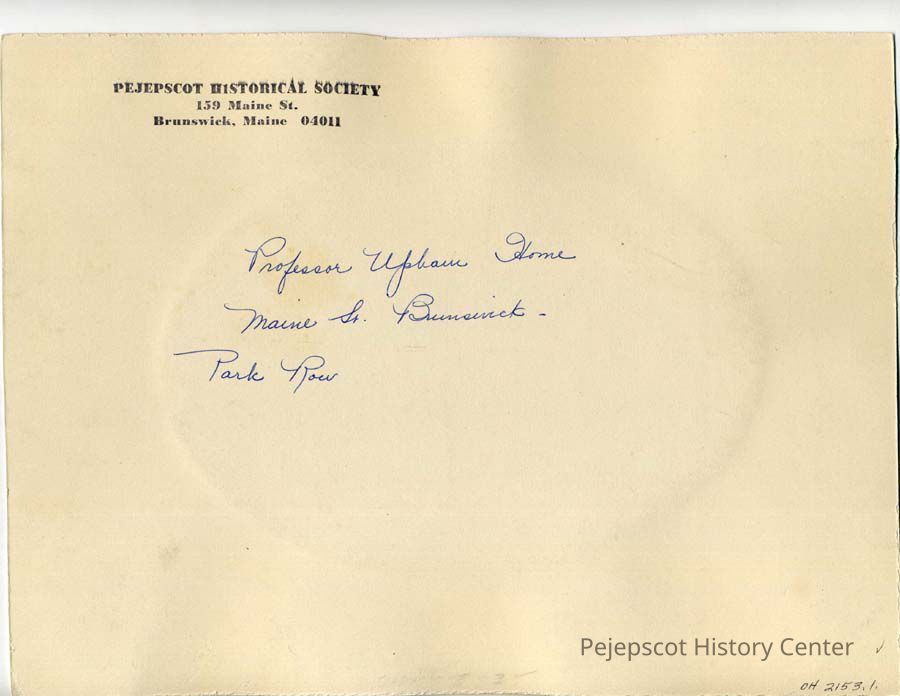 PEJEPSCOT HISTORICAL SOCIETY
159 Maine St.
Brunswick, Maine 04011
Professor Upham Home
Maine St. Brunswick -
Park Row
Pejepscot History Center
OH 2153.1.